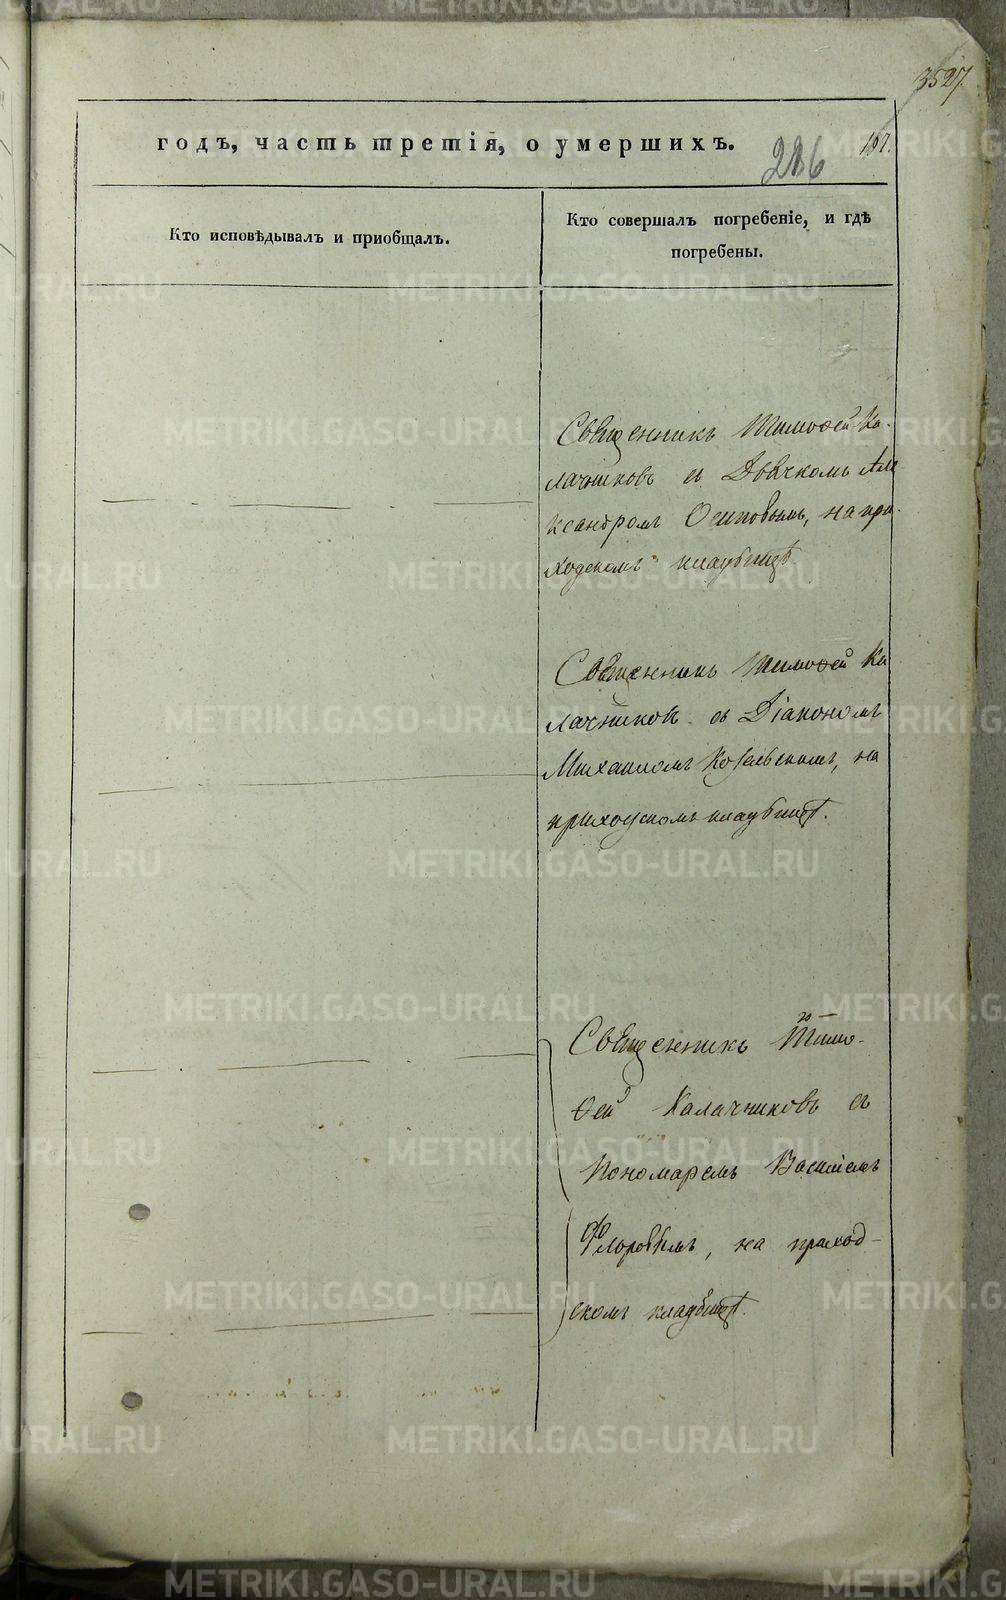 3527.
годъ, часть третія, о умершихъ.
286
167.
Кто исповѣдывалъ и пріобщалъ.
Кто совершалъ погребеніе, и гдѣ
погребены.
Священникъ Тимоѳей Ка-
лачниковъ съ Дьячкомъ Але
ксандромъ Осиповымъ, на при-
ходскомъ кладбищѣ
Священникъ Тимоѳей Ка
лачников съ Діакономъ
Михаиломъ Ко
на
приходскомъ кладбищѣ.
Священникъ Тимо-
ѳей Калачниковъ съ
Пономаремъ Василіемъ
Флоровымъ, на приход-
скомъ кладбищѣ.
METRIKI.GASO-URAL.RU